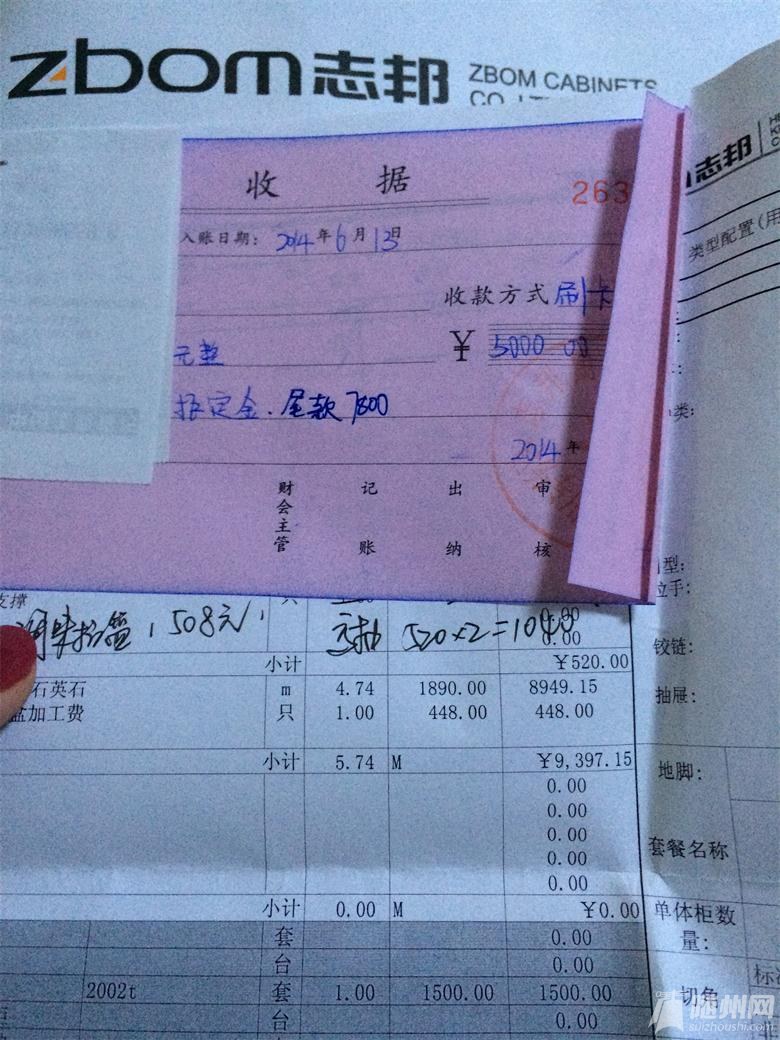 zbom志邦 ZBOM CABINETS
收 据
263
入账日期: 2014年6月13日
收款方式 刷卡
元整 ¥ 5000 00
定金. 尾款7800
2014年
财会主管 记账 出纳 审核
志邦
类型配置(用
类:
型:
拉手:
铰链:
抽屉:
地脚:
套餐名称
单体柜数量:
切角
支撑 只
0.00
508元, 520×2=1040 0.00
小计 ¥520.00
石英石 m 4.74 1890.00 8949.15
盆加工费 只 1.00 448.00 448.00
小计 5.74 M ¥9,397.15
0.00
0.00
0.00
0.00
0.00
小计 0.00 M ¥0.00
套 0.00
台 0.00
2002t 套 1.00 1500.00 1500.00
台 0.00
随州网
suizhoushi.com